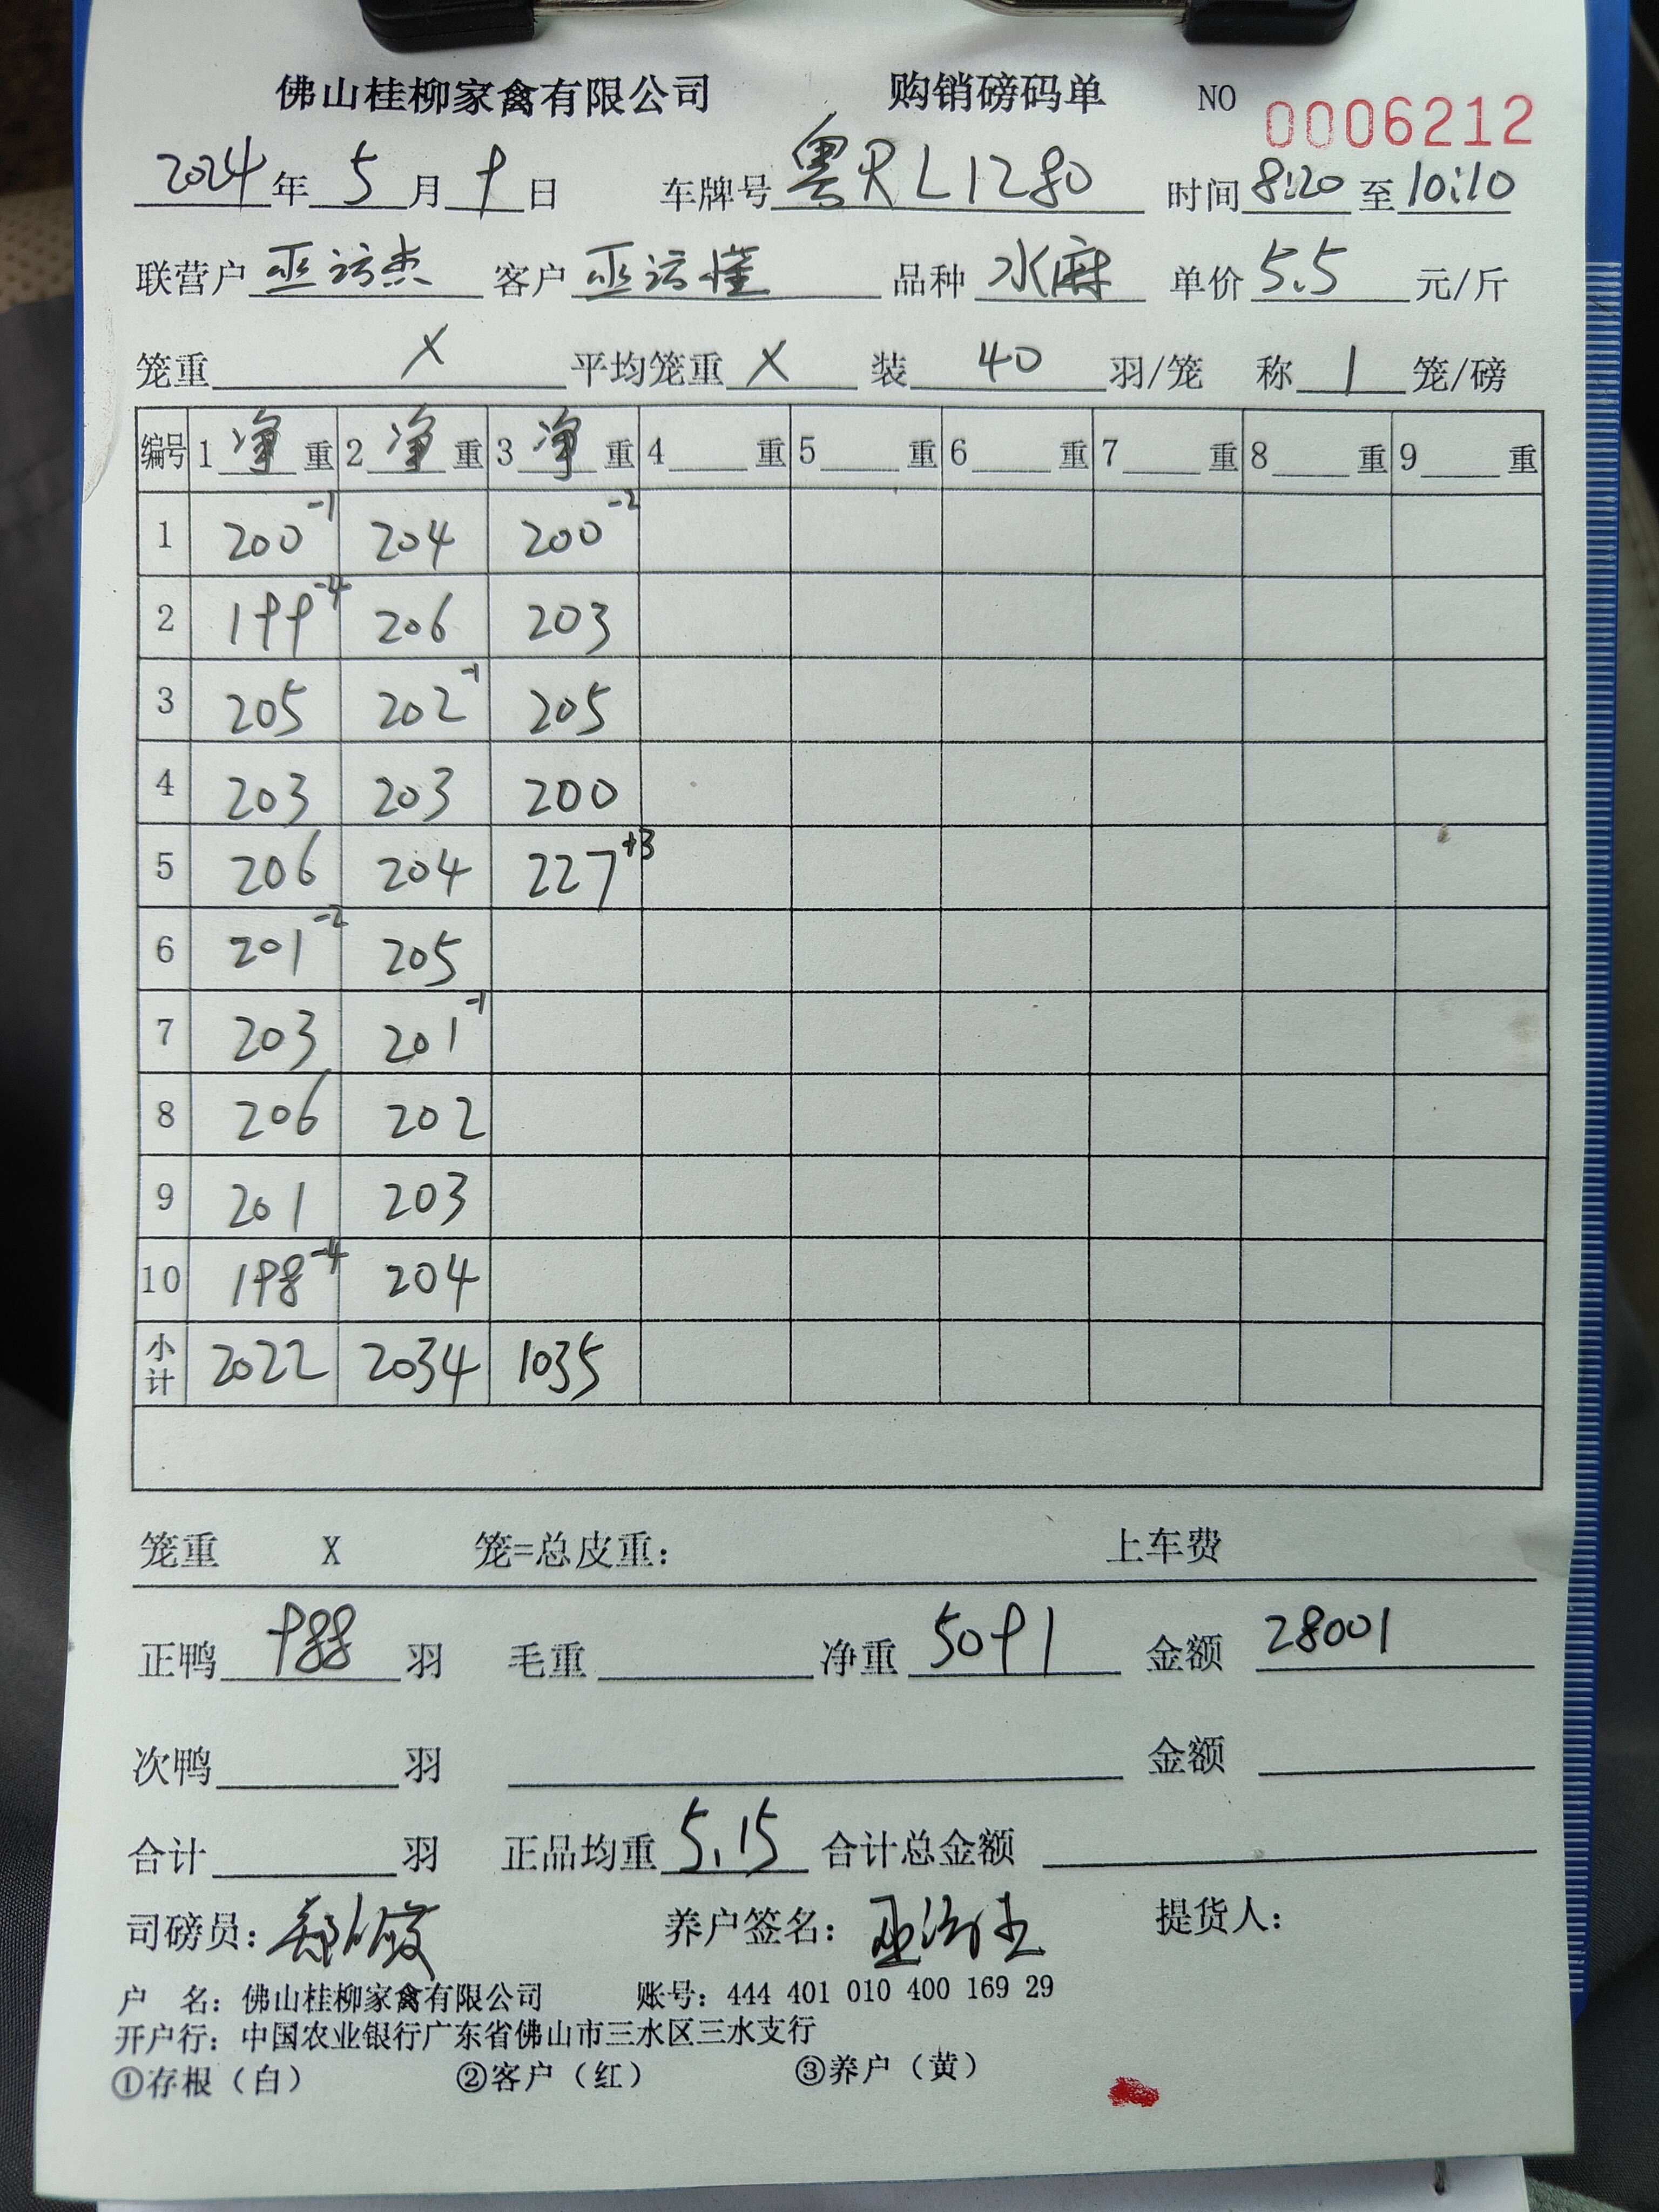 佛山桂柳家禽有限公司 购销磅码单 NO 0006212
2024年5月9日 车牌号粤RL1280 时间8:20至10:10
联营户 巫 杰 客户 巫 品种 水麻 单价5.5元/斤
笼重 X 平均笼重 X 装 40 羽/笼 称 1 笼/磅
编号 1净重 2净重 3净重 4 重 5 重 6 重 7 重 8 重 9 重
1 200-1 204 200-2
2 199-4 206 203
3 205 202-1 205
4 203 203 200
5 206 204 227+3
6 201-2 205
7 203 201-1
8 206 202
9 201 203
10 198-4 204
小计 2022 2034 1035
笼重 X 笼=总皮重： 上车费
正鸭 988 羽 毛重 净重 5091 金额 28001
次鸭 羽 金额
合计 羽 正品均重 5.15 合计总金额
司磅员： 养户签名： 提货人：
户 名：佛山桂柳家禽有限公司 账号：444 401 010 400 169 29
开户行：中国农业银行广东省佛山市三水区三水支行
①存根（白） ②客户（红） ③养户（黄）